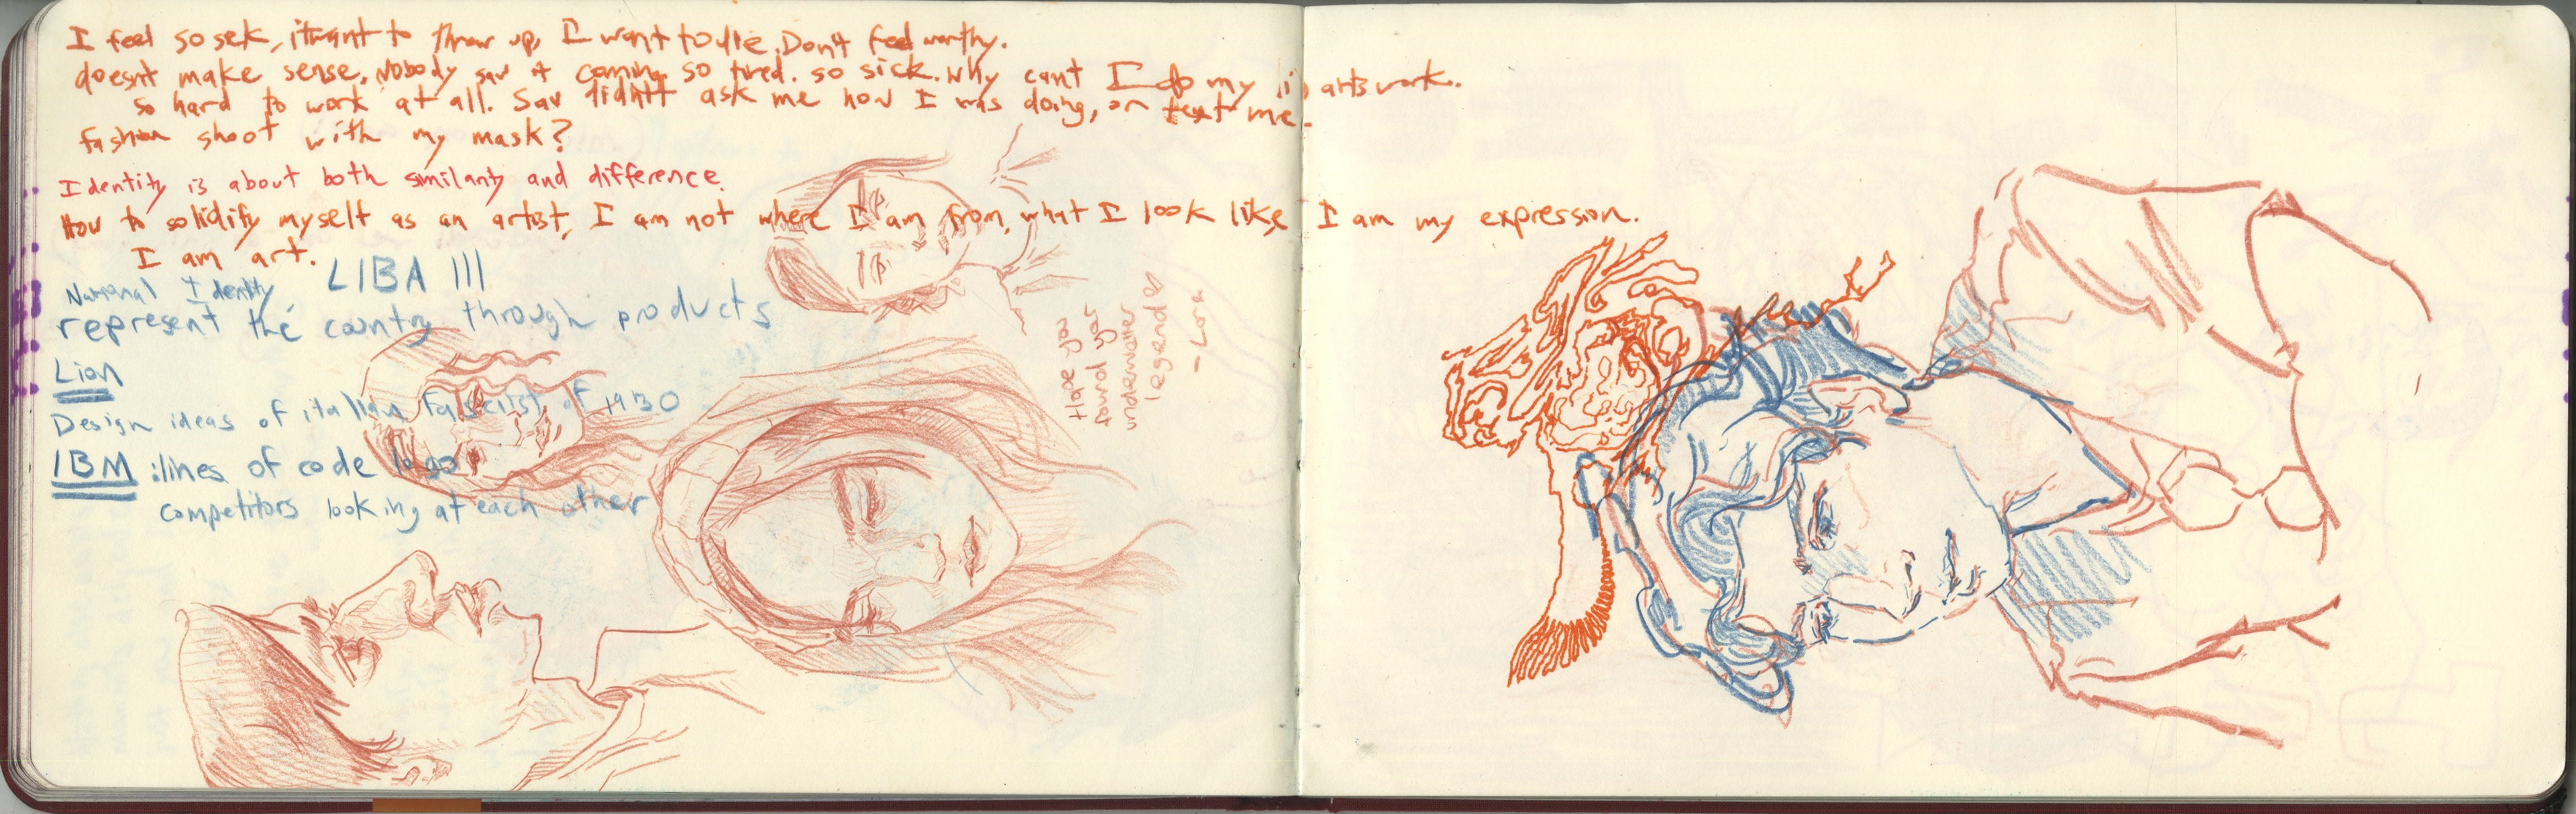 I feel so sek, itwant to throw up, I want to die. Don't feel worthy.
doesn't make sense. Nobody saw it coming. so tired. so sick. Why cant I do my artswork.
so hard to work at all. Sav didn't ask me how I was doing, or text me.
fashion shoot with my mask?
Identity is about both similarity and difference.
How to solidify myself as an artist, I am not where I am from, what I look like, I am my expression.
I am art.
LIBA III
National Identity
represent the country through products
Lion
Design ideas of italian fascist of 1930
IBM :lines of code logo
competitors looking at each other
Hope you
found yas
underwater
legend
- Lora